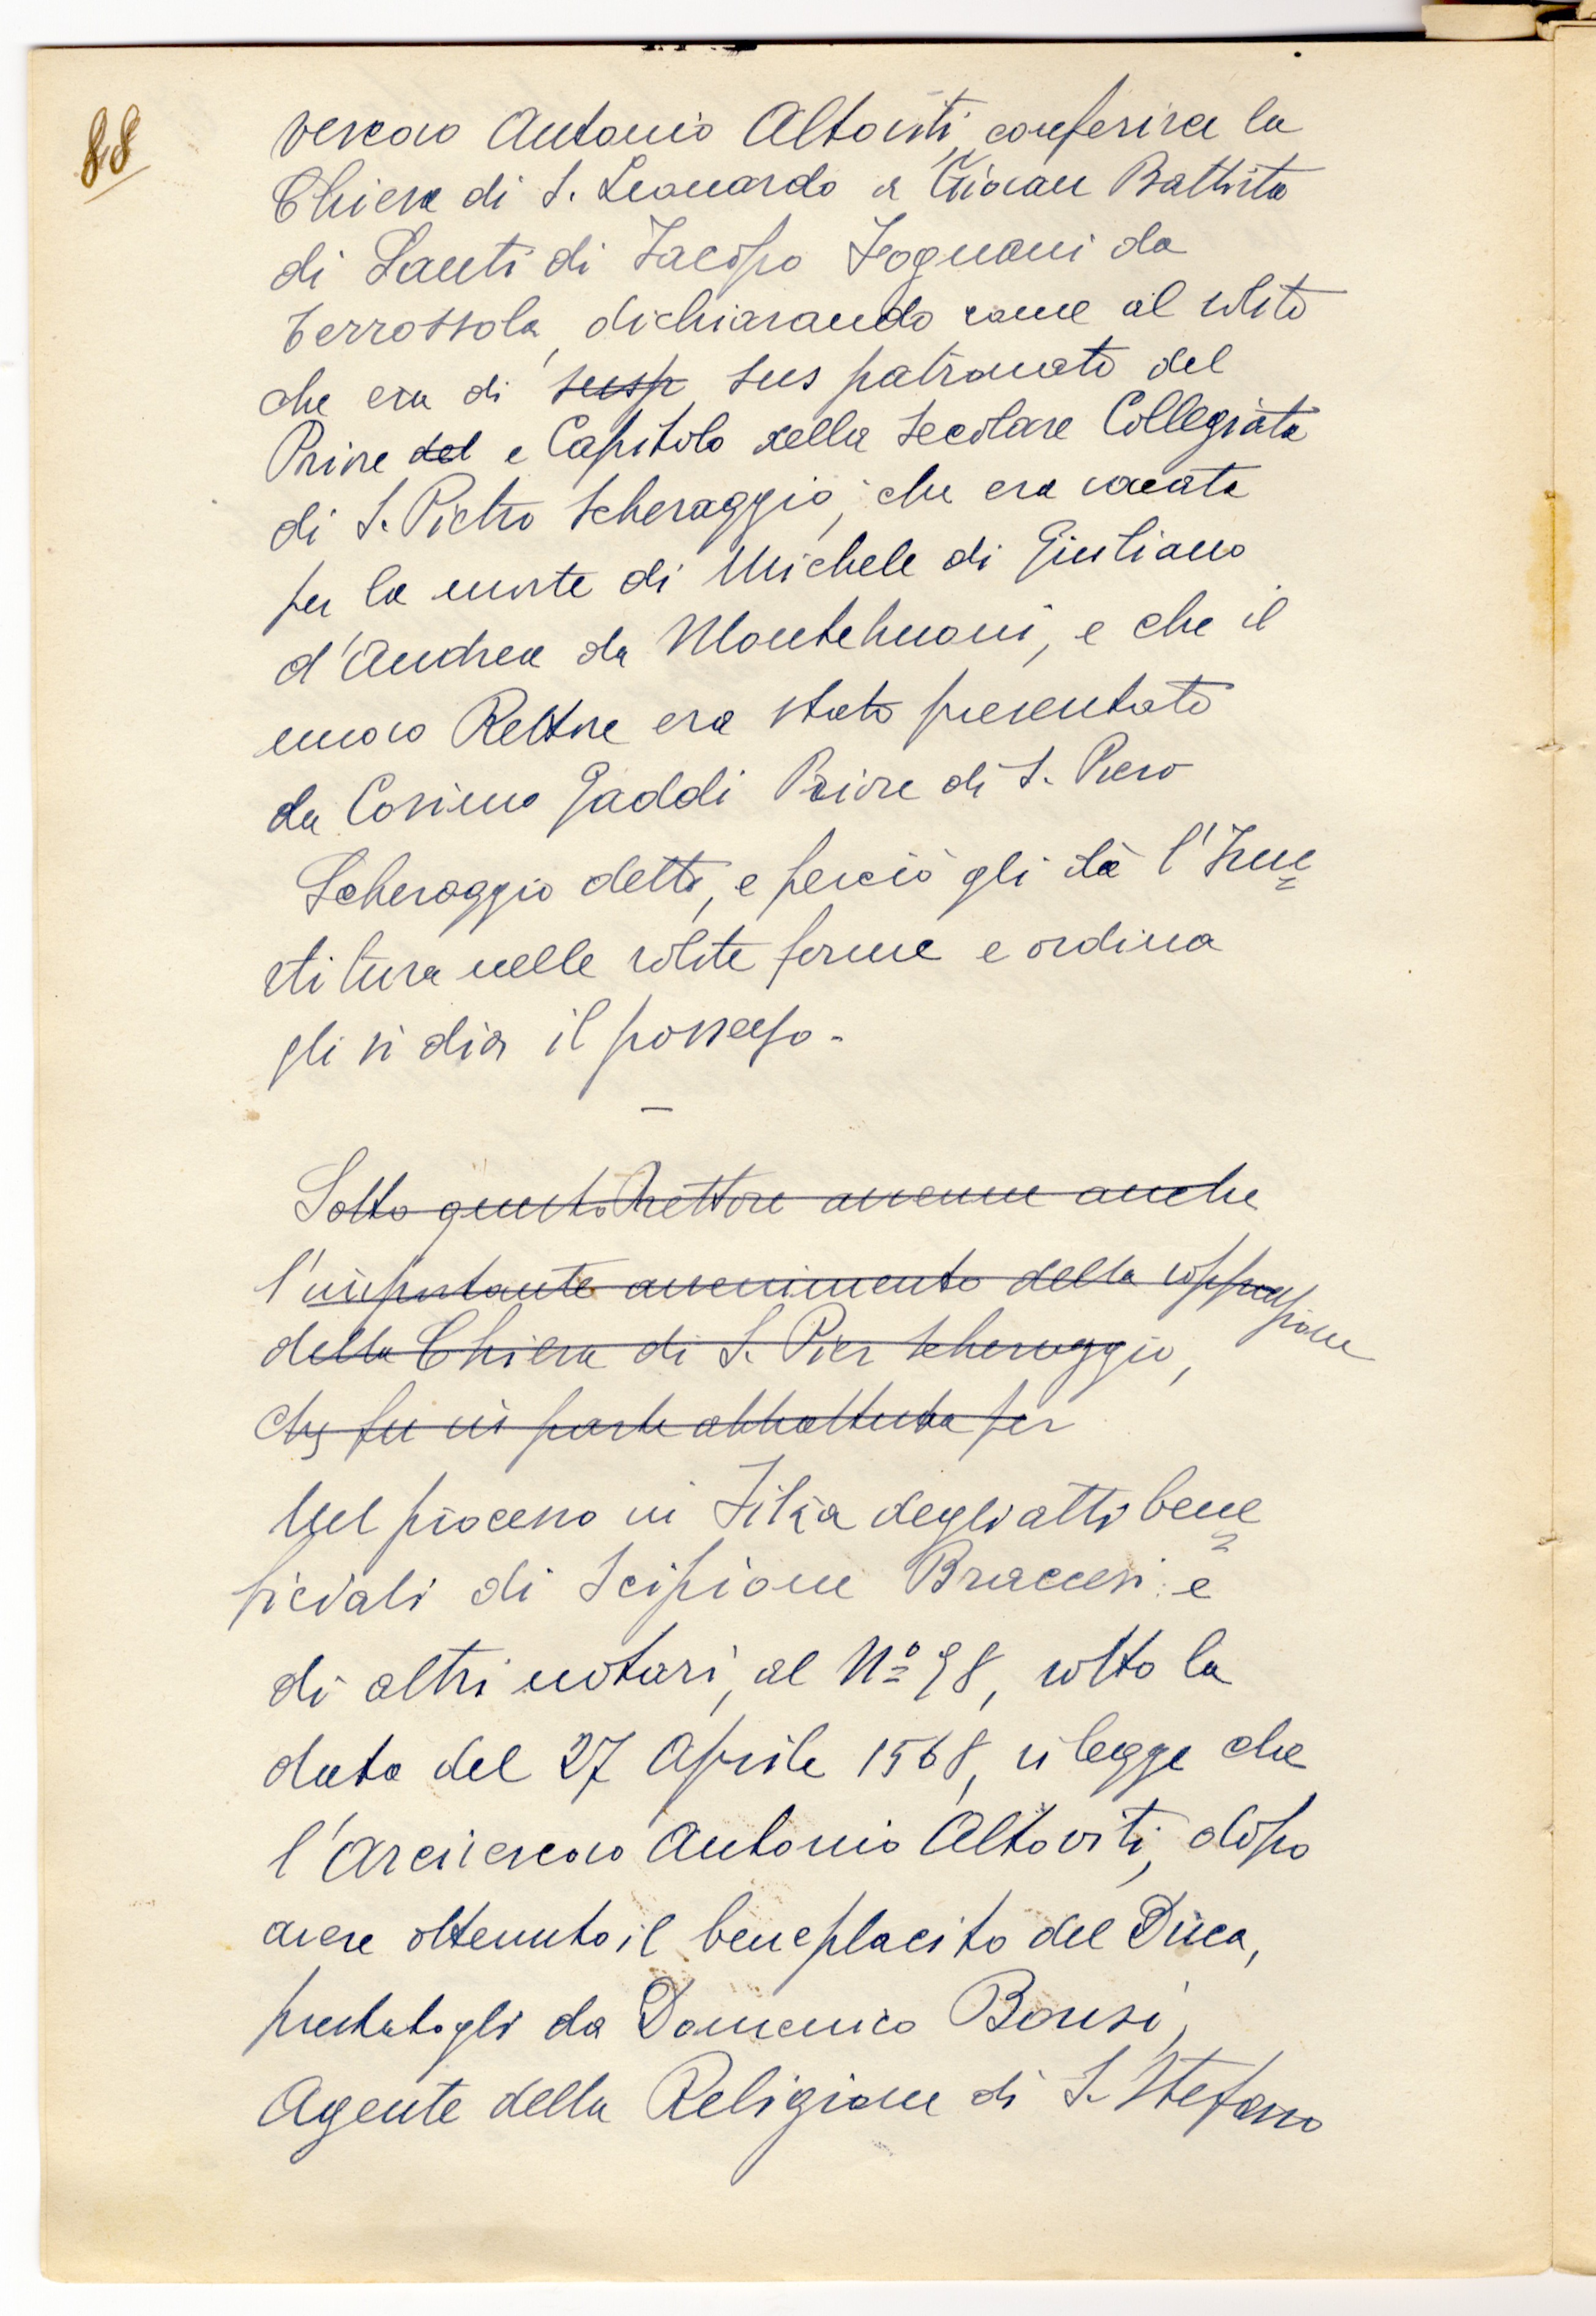 88
vescovo Antonio Altoviti, conferisce la
Chiesa di S. Leonardo a Giovan Battista
di Santi di Jacopo Fognani da
Terrossola, dichiarando come al solito
che era di susp Jus patronato del
Priore del e Capitolo della Secolare Collegiata
di S. Pietro Scheraggio, che era vacata
per la morte di Michele di Giuliano
d'Andrea da Montebuoni, e che il
nuovo Rettore era stato presentato
da Cosimo Gaddi Priore di S. Piero
Scheraggio detto, e perciò gli dà l'Inve
stitura nelle solite forme e ordina
gli si dia il possesso.
Sotto questo Rettore avvenne anche
l'importante avvenimento della soppressione
della Chiesa di S. Pier Scheraggio,
che fu in parte abbattuta per
Nel processo in Filza degli atti bene
ficiali di Scipione Braccesi e
di altri notari, al Nº 98, sotto la
data del 27 Aprile 1568, si legge che
l'Arcivescovo Antonio Altoviti, dopo
avere ottenuto il beneplacito del Duca,
prestatogli da Domenico Bonsi,
Agente della Religione di S. Stefano